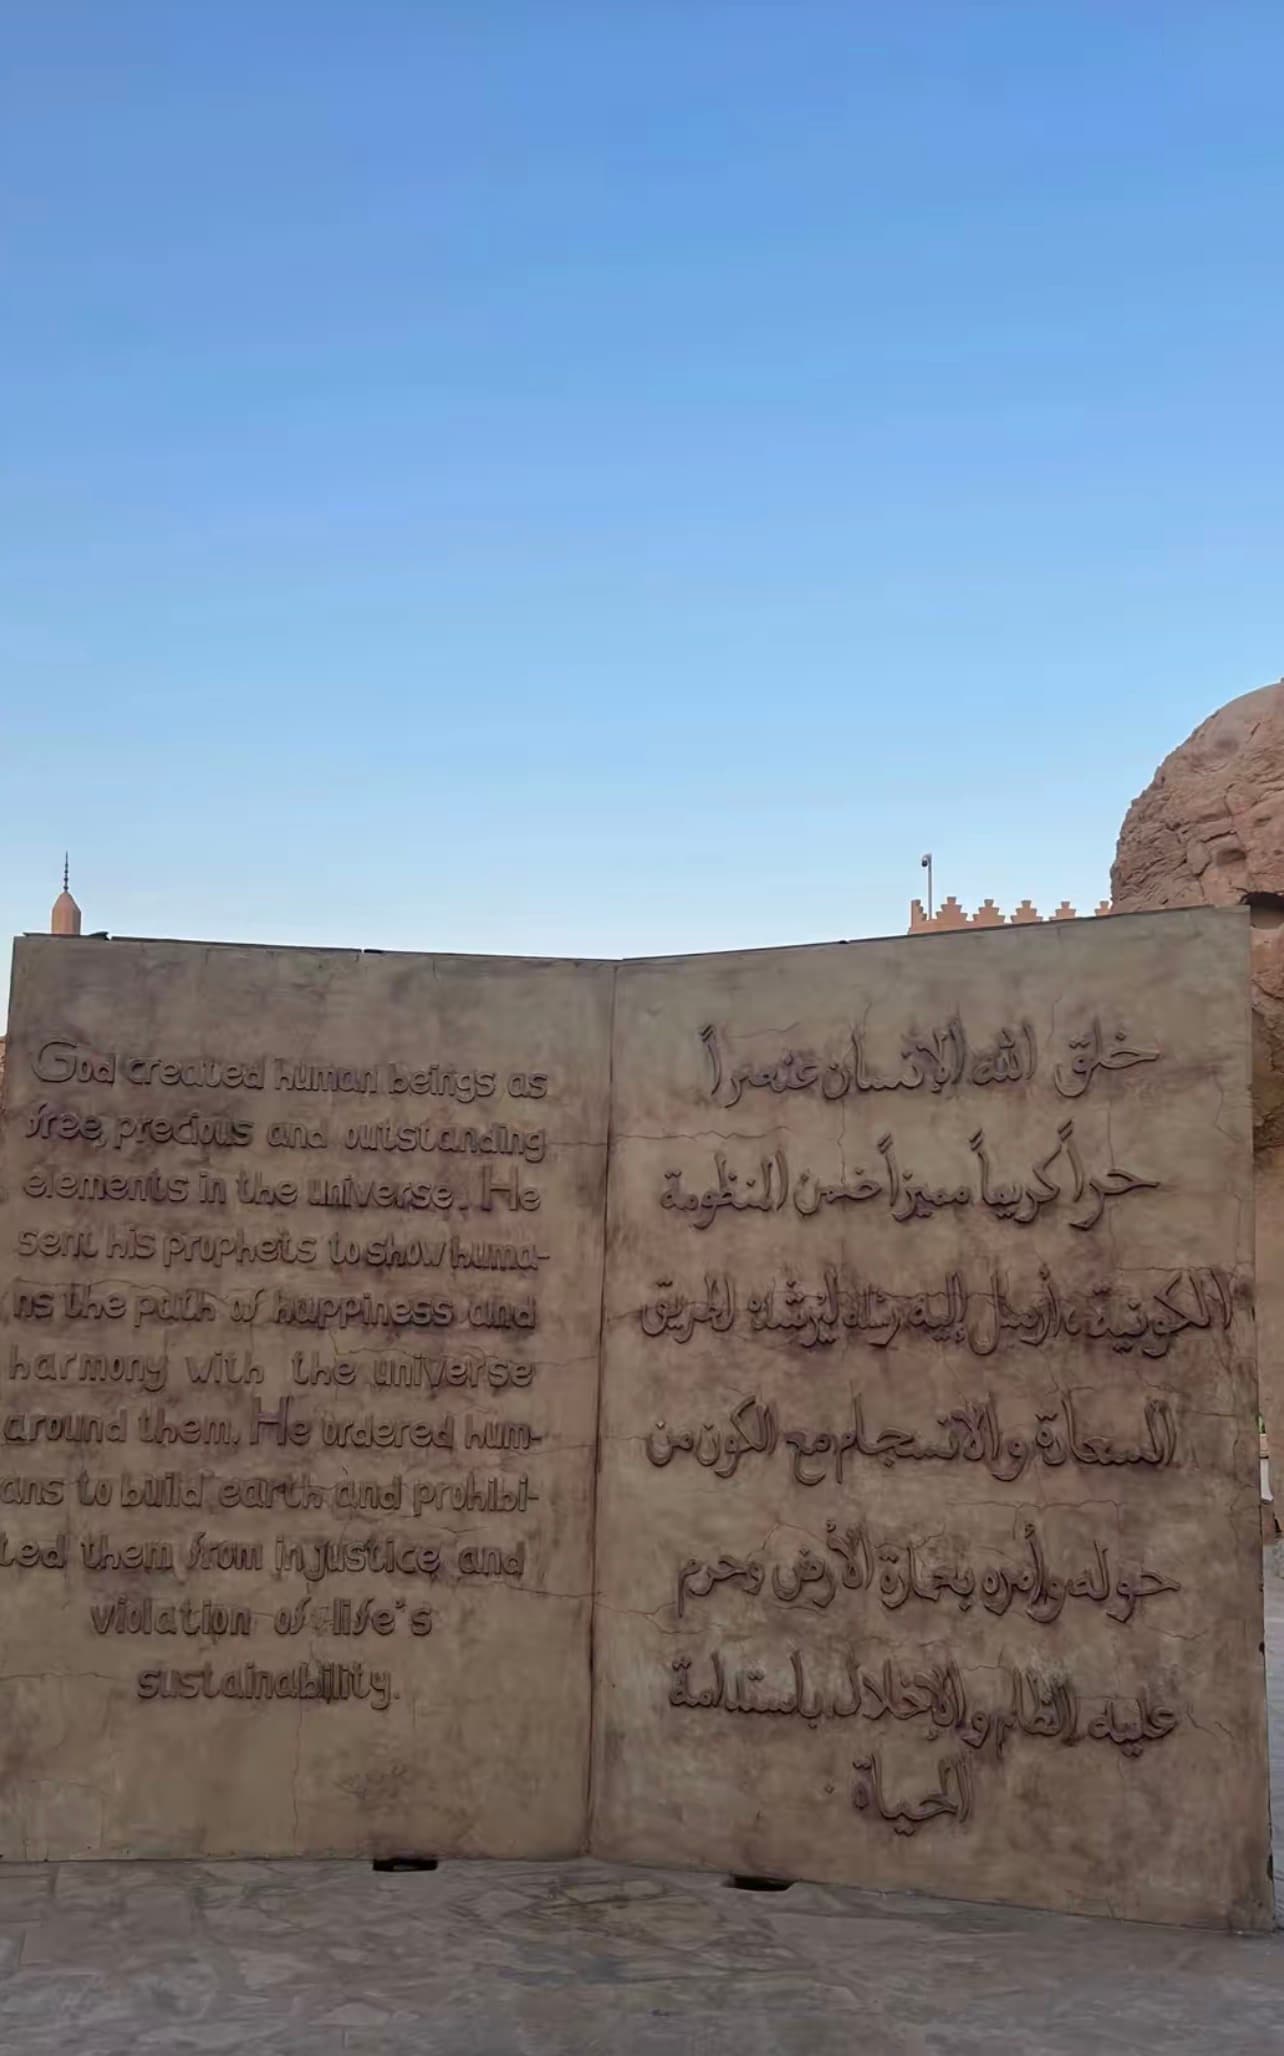 God created human beings as
free, precious and outstanding
elements in the universe. He
sent his prophets to show huma-
ns the path of happiness and
harmony with the universe
around them. He ordered hum-
ans to build earth and prohibi-
ted them from injustice and
violation of life's
sustainability.
خلق الله الإنسان عنصراً
حراً كريماً مميزاً ضمن المنظومة
الكونية، أرسل إليه رسله ليرشده لطريق
السعادة والانسجام مع الكون من
حوله وأمره بعمارة الأرض وحرم
عليه الظلم والإخلال باستدامة
الحياة .